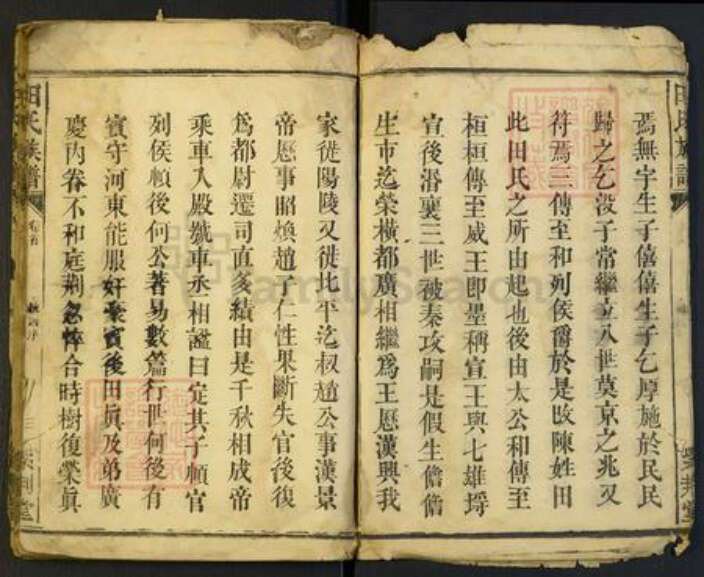 田氏族譜
焉無宇生子僖僖生子乞厚施於民民
歸之乞沒子常繼立八世莫京之兆又
符焉三傳至和列侯爵於是改陳姓田
此田氏之所由起也後由太公和傳至
桓桓傳至威王即墨稱宣王與七雄埒
宣後湣襄三世被秦攻嗣是假生儋儋
生市迄榮橫都廣相繼為王歷漢興我
家徙陽陵又徙北平迄叔趙公事漢景
帝歷事昭煥趙子仁性果斷失官後復
為都尉遷司直多績由是千秋相成帝
乘車入殿號車丞相謚曰定其子順官
列侯順後何公著易數篇行世何後有
賓守河東能服奸豪賓後田真及弟廣
慶內眷不和庭荊忽悴合時樹復榮真
田氏族譜
紫荊堂
FamilySearch